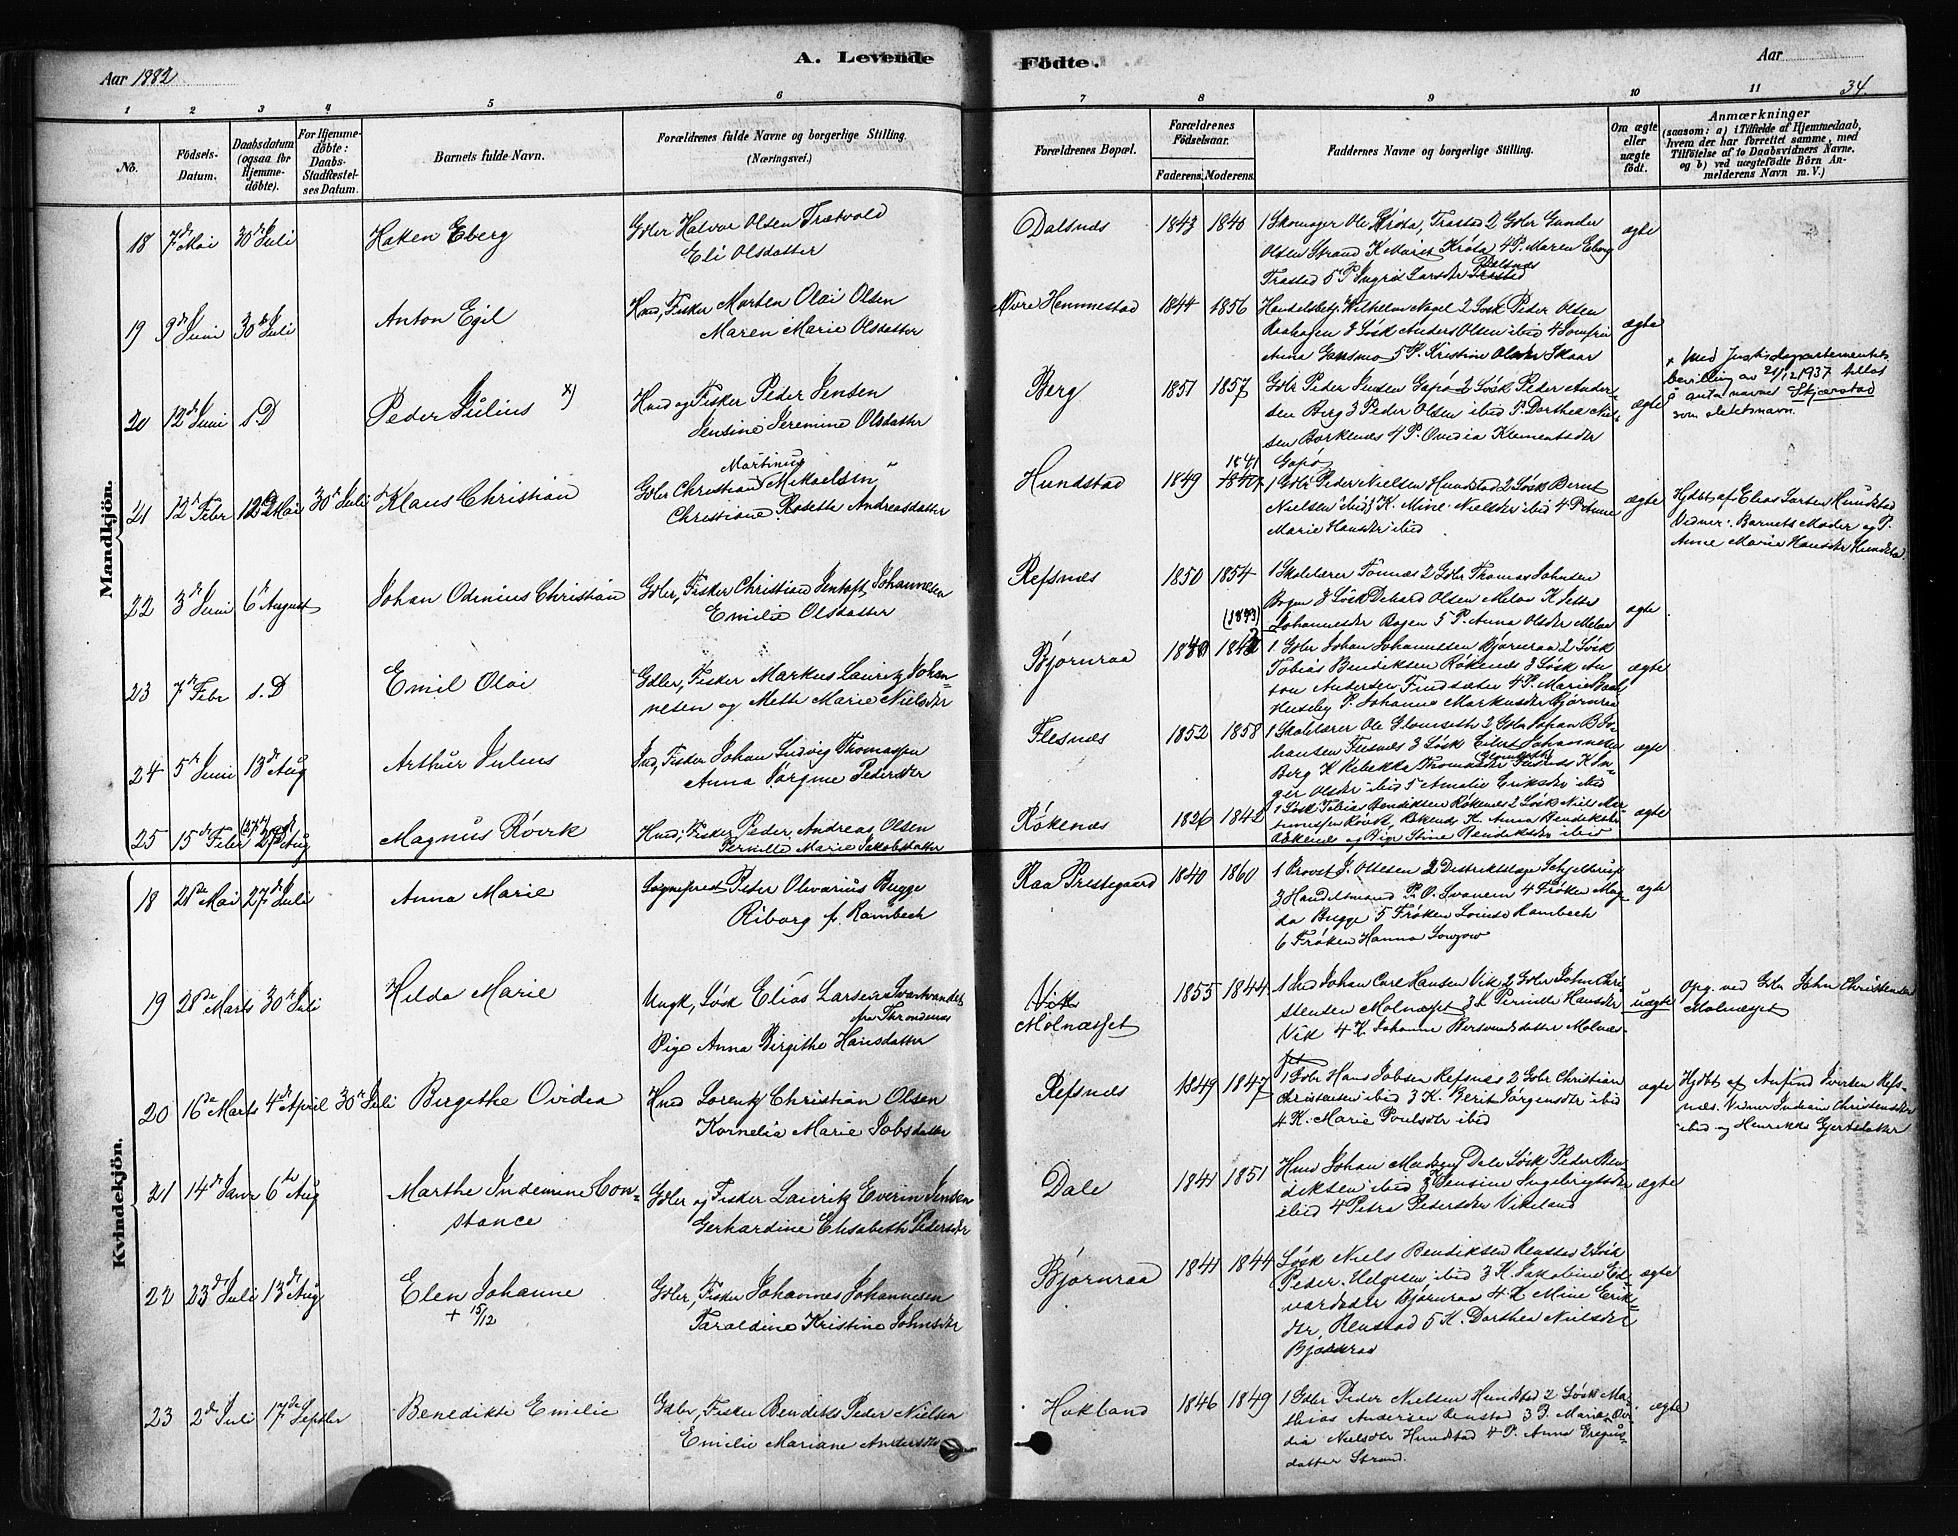 Aar 1882
A. Levende
Födte.
Aar
34.
1 2 3 4 5 6 7 8 9 10 11
No.
Födsels-
Datum.
Daabsdatum
(ogsaa for
Hjemme-
döbte).
For Hjemme-
döbte:
Daabs-
Stadfæstel-
ses Datum.
Barnets fulde Navn.
Forældrenes fulde Navne og borgerlige Stilling.
(Næringsvei.)
Forældrenes Bopæl.
Forældrenes
Födselsaar.
Faderens. Moderens.
Faddernes Navne og borgerlige Stilling.
Om ægte
eller
uægte
födt.
Anmærkninger
(saasom: a) i Tilfælde af Hjemmedaab,
hvem der har forrettet samme, med
Tilföielse af to Daabsvidners Navne,
og b) ved uægtefödte Börn An-
melderens Navn m. V.)
Mandkjön.
18 7de Mai 30te Juli Haken Eberg Gdbr Halvor Olsen Trætvold
Eli Olsdatter
Dalsnes 1843 1840 1 Skomager Ole Krøta, Trastad 2 Gdbr Gunder
Olsen Strand K Marit Krøta 4 P. Maren Eberg
Trastad 5 P Ingrid Larsdtr Dalsnes
ægte
19 9de Juni 30te Juli Anton Egil Hmd, Fisker Morten Olai Olsen
Maren Marie Olsdatter
Øvre Hemmestad 1844 1856 Handelsbetj. Wilhelm Nagel 2 Løsk Peder Olsen
3 Løsk Anders Olsen ibid 4 Jomfru
Anna Gansmo 5 P. Kristine Olsdtr Skaar
ægte
20 12te Juni s.D Peder Julius x) Hmd og Fisker Peder Jensen
Jensine Jeremine Olsdatter
Berg 1851 1857 Gdbr Peder Jensen Gapø 2 Løsk Peder Ander-
sen Berg 3 Peder Olsen ibid P. Dorthea Niel-
sen Borkenes 4 P. Ovedia Klementsdtr
Gapø
ægte
x Med Justisdepartementets
bevilling av 21/12 1937 tillat
å anta navnet Skjærstad
som slektsnavn.
21 12te Febr Mai 30te Juli Klaus Christian Gdbr Christian Martinus Mikaelsen
Christiane Rosette Andreasdatter
Hundstad 1849 1841 1 Gdbr Peder Nielsen Hundstad 2 Løsk Bernt
Nielsen ibid 3 K. Mine Nielsdtr ibid 4 P Anne
Marie Hansdtr ibid
ægte
Hjdbt af Elias Larsen Hundstad
Vidner: Barnets Moder og P.
Anne Marie Hansdtr Hundstad
22 3de Juni 6te August Johan Odinius Christian Gdbr, Fisker Christian Jentoft Johannesen
Emilie Olsdatter
Refsnes 1850 1854 1 Skolelærer Tønnes 2 Gdbr Thomas Johnsen
Bogen 3 Løsk Dehard Olsen Melaa K Jette
Johannesdtr Bogen 5 P. Anna Olsdtr Melaa
ægte
23 7de Febr s.D Emil Olai Gdbr, Fisker Markus Lauritz Johan-
nesen og Mette Marie Nielsdtr
Bjørnraa (1843) 1 Gdbr Johan Johannessen Bjørnraa 2 Løsk
Tobias Bendiksen Røkenes 3 Løsk An-
ton Andersen Findsæter 4 P. Marie
Huseby P. Johanna Markusdtr Bjørnraa
ægte
24 5te Juni 13de Aug Arthur Julius Ind, Fisker Johan Ludvig Thomassen
Anna Jørgine Pedersdtr
Flesnes 1852 1858 1 Skolelærer Ole Slomseth 2 Gdbr Johan B Jo-
hansen Flesnes 3 Løsk Eilert Johannesen
Berg K Rebekka Thomasdtr K In-
ger Olsdtr ibid 5 Amalie Eriksdtr ibid
ægte
25 15de Febr 27de Aug Magnus Rövik Hmd, Fisker Peder Andreas Olsen
Pernille Marie Jakobsdatter
Røkenes 1826 1842 1 Løsk Tobias Bendiksen Røkenes 2 Løsk Niels Mar-
tinussen Røvik, Røkenes K. Anna Bendiksdtr
Røkenes og Pige Stine Bendiksdtr ibid
ægte
Kvindekjön.
18 21de Mai 27de Juli Anna Marie Sogneprest Peter Olivarius Bugge
Riborg f. Rambech
Kaa Prestegaard 1840 1860 1 Provst J. Ottesen 2 Distriktslæge Schjelderup
3 Handelsmand P. O. Svanem 4 Frøken Mag-
da Bugge 5 Frøken Louise Rambech
6 Frøken Hanna Lowzow
ægte
19 21de Marts 30te Juli Hilda Marie Ungk, Løsk Elias Larsen Svartvandet
fra Throndenes
Pige Anna Birgithe Hansdatter
Vik
Molnæsset
1855 1844 1 Ind Johan Carl Hansen Vik 2 Gdbr John Chri-
stensen Molnæset 3 K Pernille Hansdtr
Vik 4 K. Johanne Bersvendsdatter Molnæs-
set
uægte
Opg. ved Gbr John Christensen
Molnæset
20 16de Marts 4de April 30te Juli Birgithe Ovidea Hmd Lorentz Christian Olsen
Kornelia Marie Jobsdatter
Refsnes 1849 1847 1 Gdbr Hans Jobsen Refsnes 2 Gdbr Christian
Christensen ibid 3 K. Berit Jørgensdtr ibid
4 K. Marie Poulsdtr ibid
ægte
Hjdbt af Anfind Iversen Refs-
nes. Vidner Indian Christensdtr
ibid og Henrikke Gjertsdatter
21 14de Janr 6te Aug Marthe Indemine Con-
stance
Gdbr og Fisker Lauritz Everin Jensen
Gerhardine Elisabeth Pedersdtr
Dale 1841 1851 Hmd Johan Madsen Dale Løsk Peder Ben-
diksen ibid 3 K Jensine Ingebrigtsdtr
ibid 4 Petra Pedersdtr Vikeland
ægte
22 23de Juli 13de Aug Elen Johanne
+ 15/12
Gdbr, Fisker Johannes Johannesen
Taraldine Kristine Johnsdtr
Bjørnraa 1841 1844 Løsk Niels Bendiksen Renstad 2 Løsk
Peder Helgesen ibid 3 K. Jakobine Ed-
vardsdtr Bjørnraa 4 K Mine Erik-
dtr, Renstad 5 K. Dorthea Nielsdtr
Bjørnraa
ægte
23 2de Juli 17de Septbr Benedikte Emilie Gdbr, Fisker Bendikts Peder Nielsen
Emilie Mariane Andersdtr
Hokland 1846 1849 1 Gdbr Peder Nielsen Hundstad 2 Løsk Ma-
thias Andersen Renstad 3 P. Marie Ovi-
dia Nielsdtr Hundstad 4 P. Anna Gregus-
datter Strand.
ægte